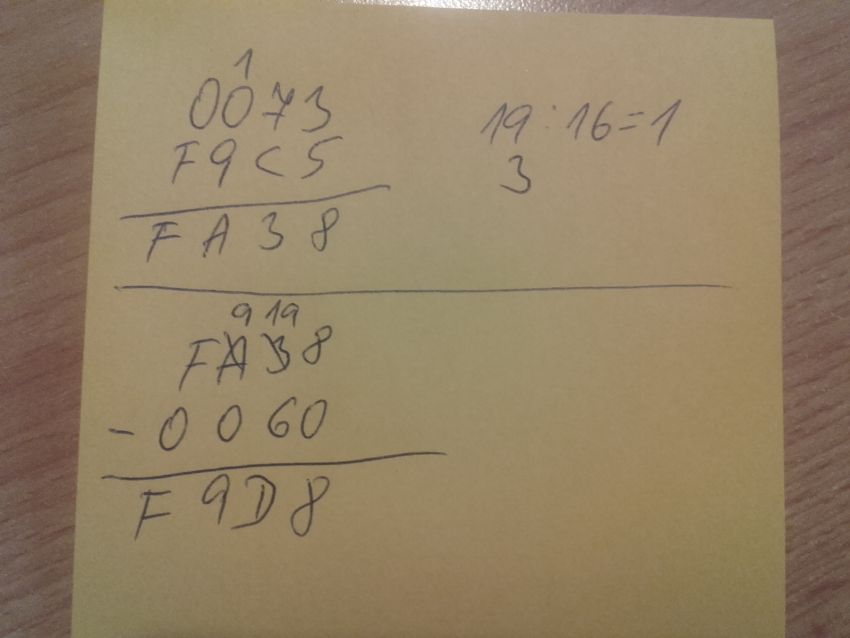 1
0073
F9C5
FA38
19:16=1
3
9 19
FA38
-0060
F9D8